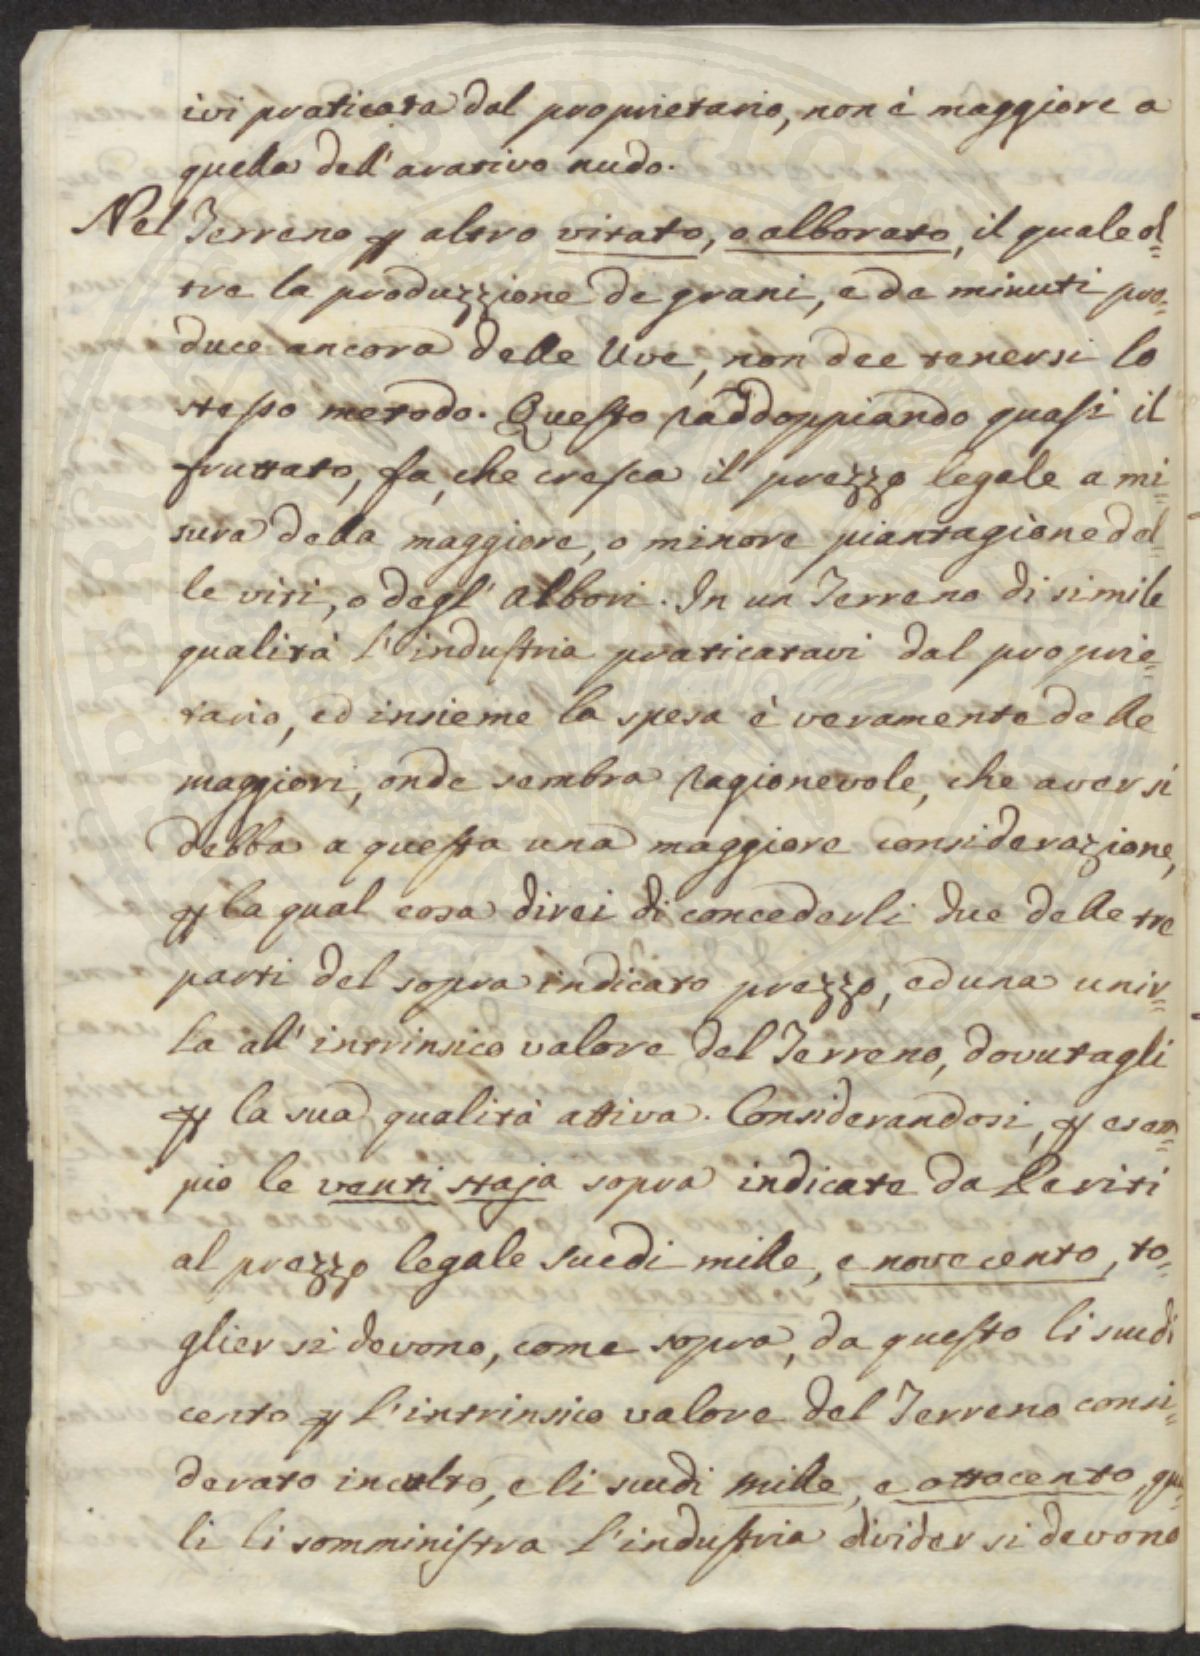 ivi praticata dal proprietario, non è maggiore a
quella dell' arativo nudo.
Nel Terreno ꝑ altro vitato, o alborato, il quale ol=
tre la produzzione de grani, e de minuti pro=
duce ancora delle Uve, non dee tenersi lo
stesso metodo. Questo raddoppiando quasi il
fruttato, fa, che cresca il prezzo legale a mi=
sura della maggiore, o minore piantagione del=
le viti, o degl' Albori. In un Terreno di simile
qualità l'industria praticatavi dal proprie=
tario, ed insieme la spesa è veramente delle
maggiori, onde sembra ragionevole, che aversi
debba a questa una maggiore considerazione,
ꝑ la qual cosa direi di concederli due delle tre
parti del sopra indicato prezzo, ed una unir=
la all' intrinsico valore del Terreno, dovutagli
ꝑ la sua qualità attiva. Considerandosi, ꝑ esem=
pio le venti staja sopra indicate da le viti
al prezzo legale scudi mille, e novecento, to=
glier si devono, come sopra, da questo li scudi
cento ꝑ l'intrinsico valore del Terreno consi=
derato incolto, e li scudi mille, e ottocento, qua=
li li somministra l'industria divider si devono